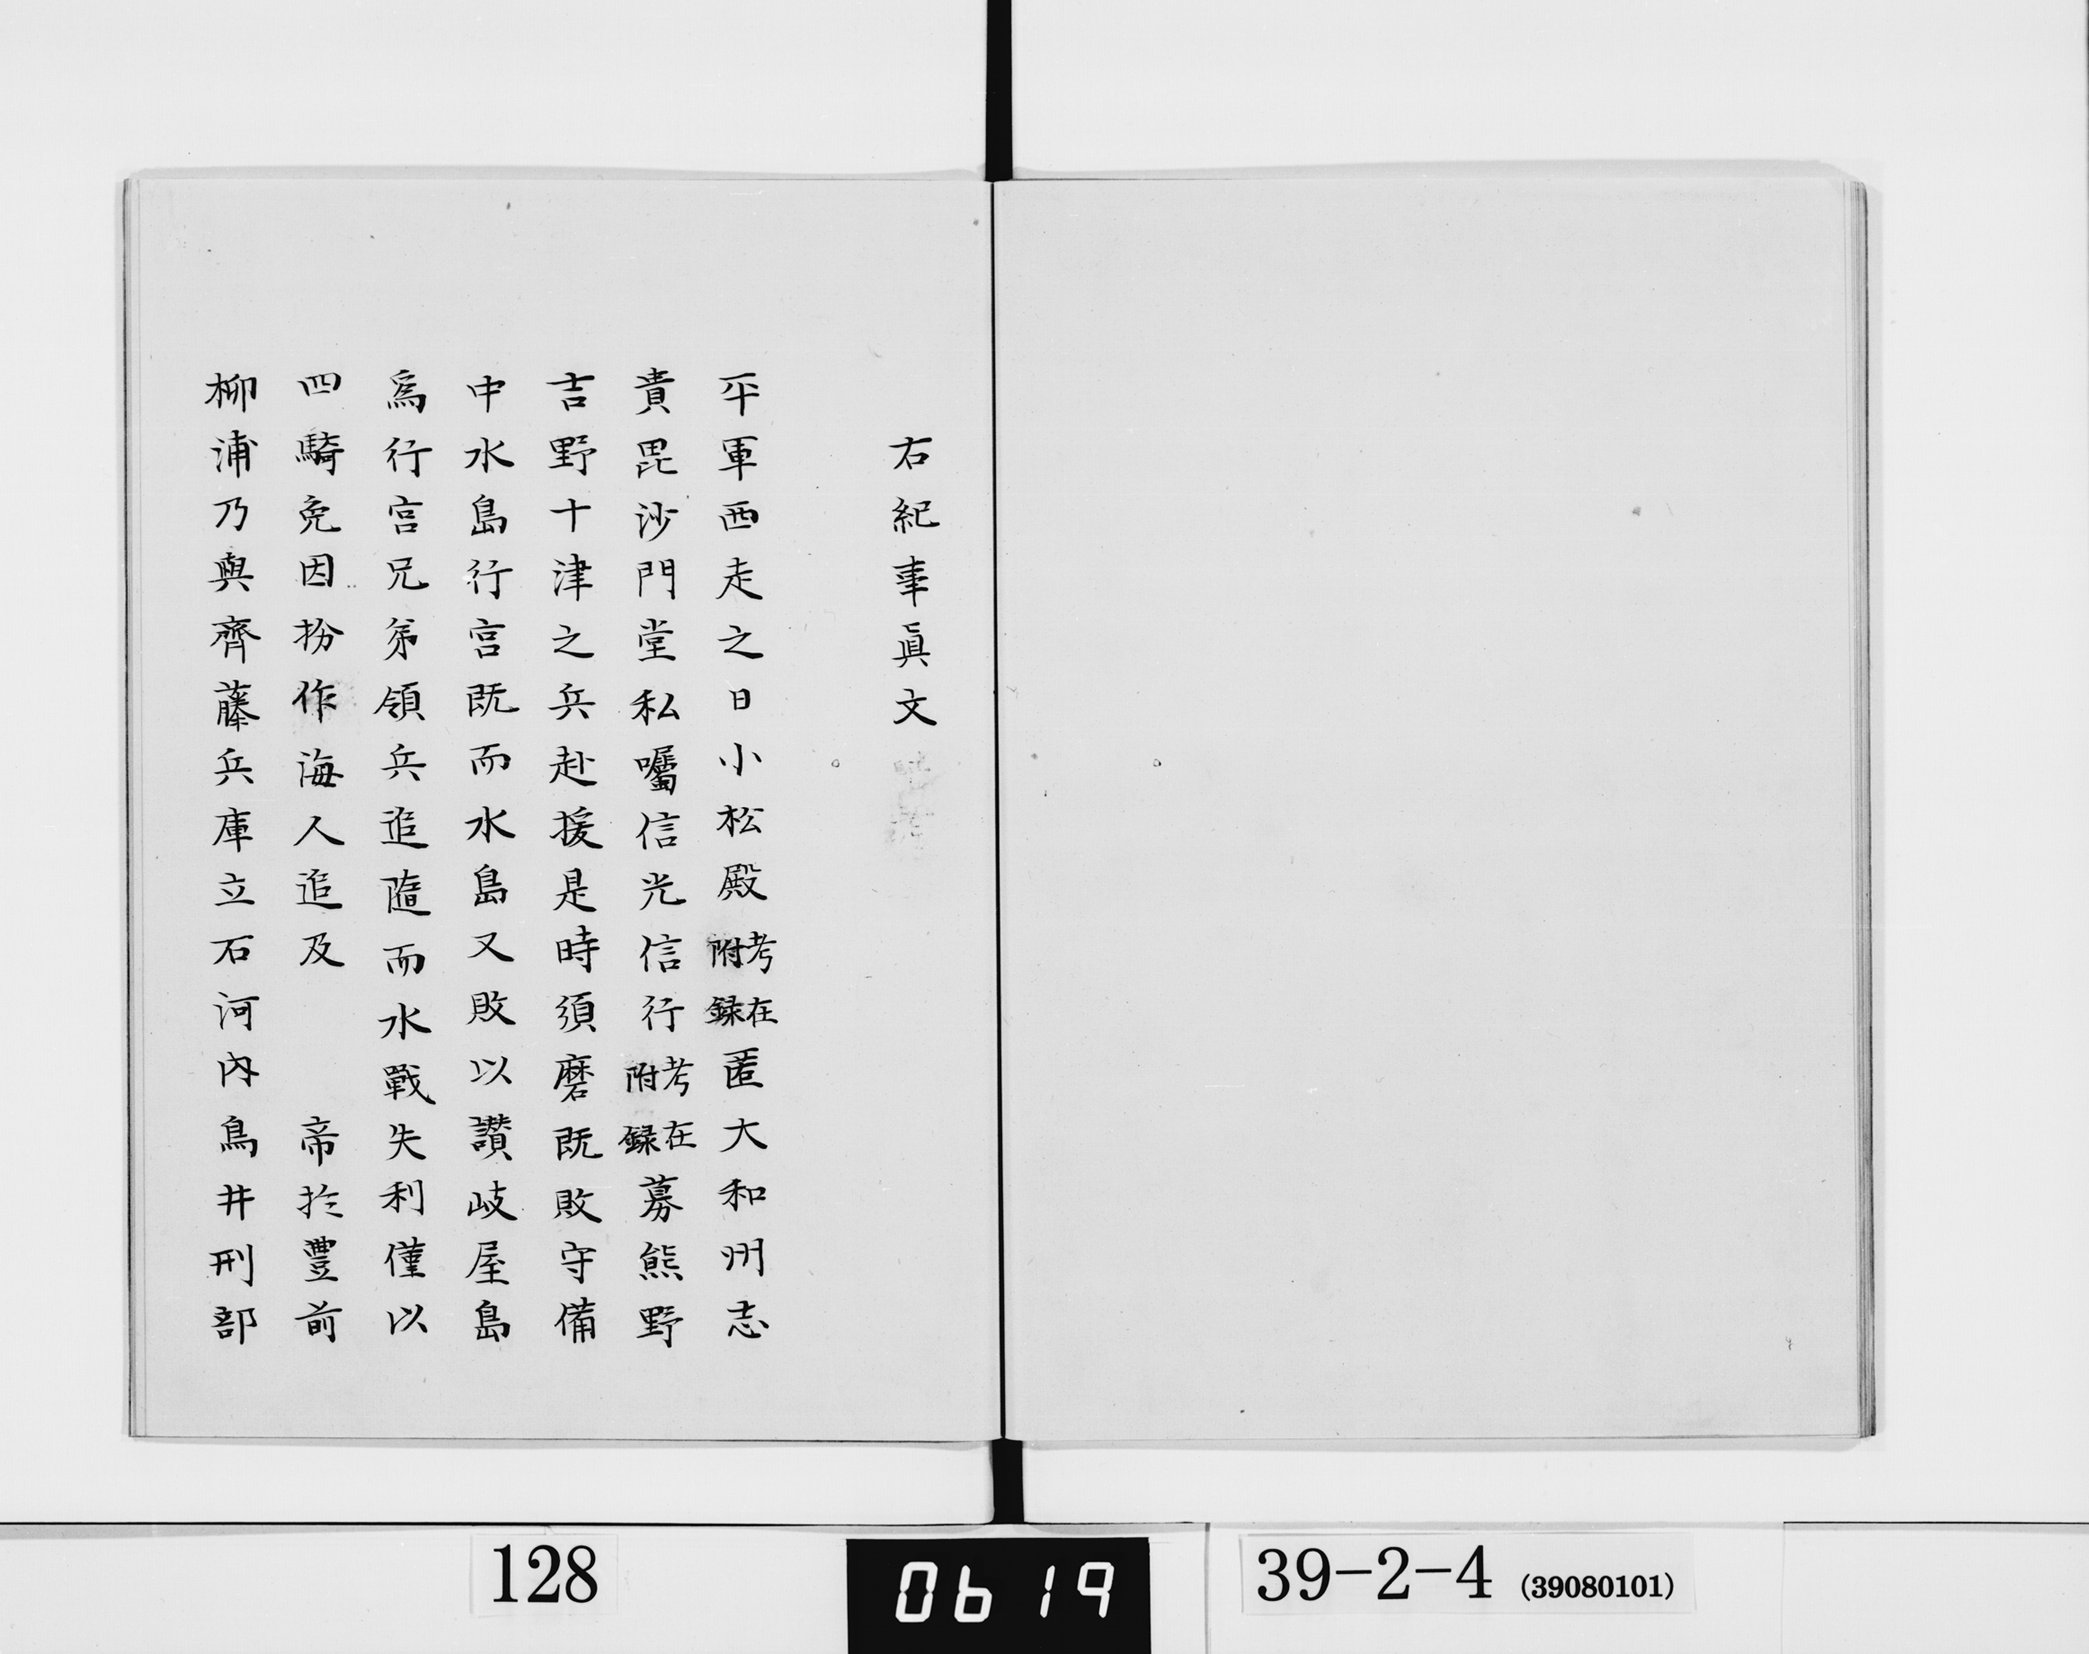 右紀事眞文
平軍西走之日小松殿考在附録匿大和州志
貴毘沙門堂私囑信光信行考在附録募熊野
吉野十津之兵赴援是時須磨既敗守備
中水島行宮既而水島又敗以讃岐屋島
爲行宮兄弟領兵追隨而水戰失利僅以
四騎免因扮作海人追及　帝於豐前
柳浦乃與齊藤兵庫立石河内鳥井刑部
128
0619
39-2-4 (39080101)